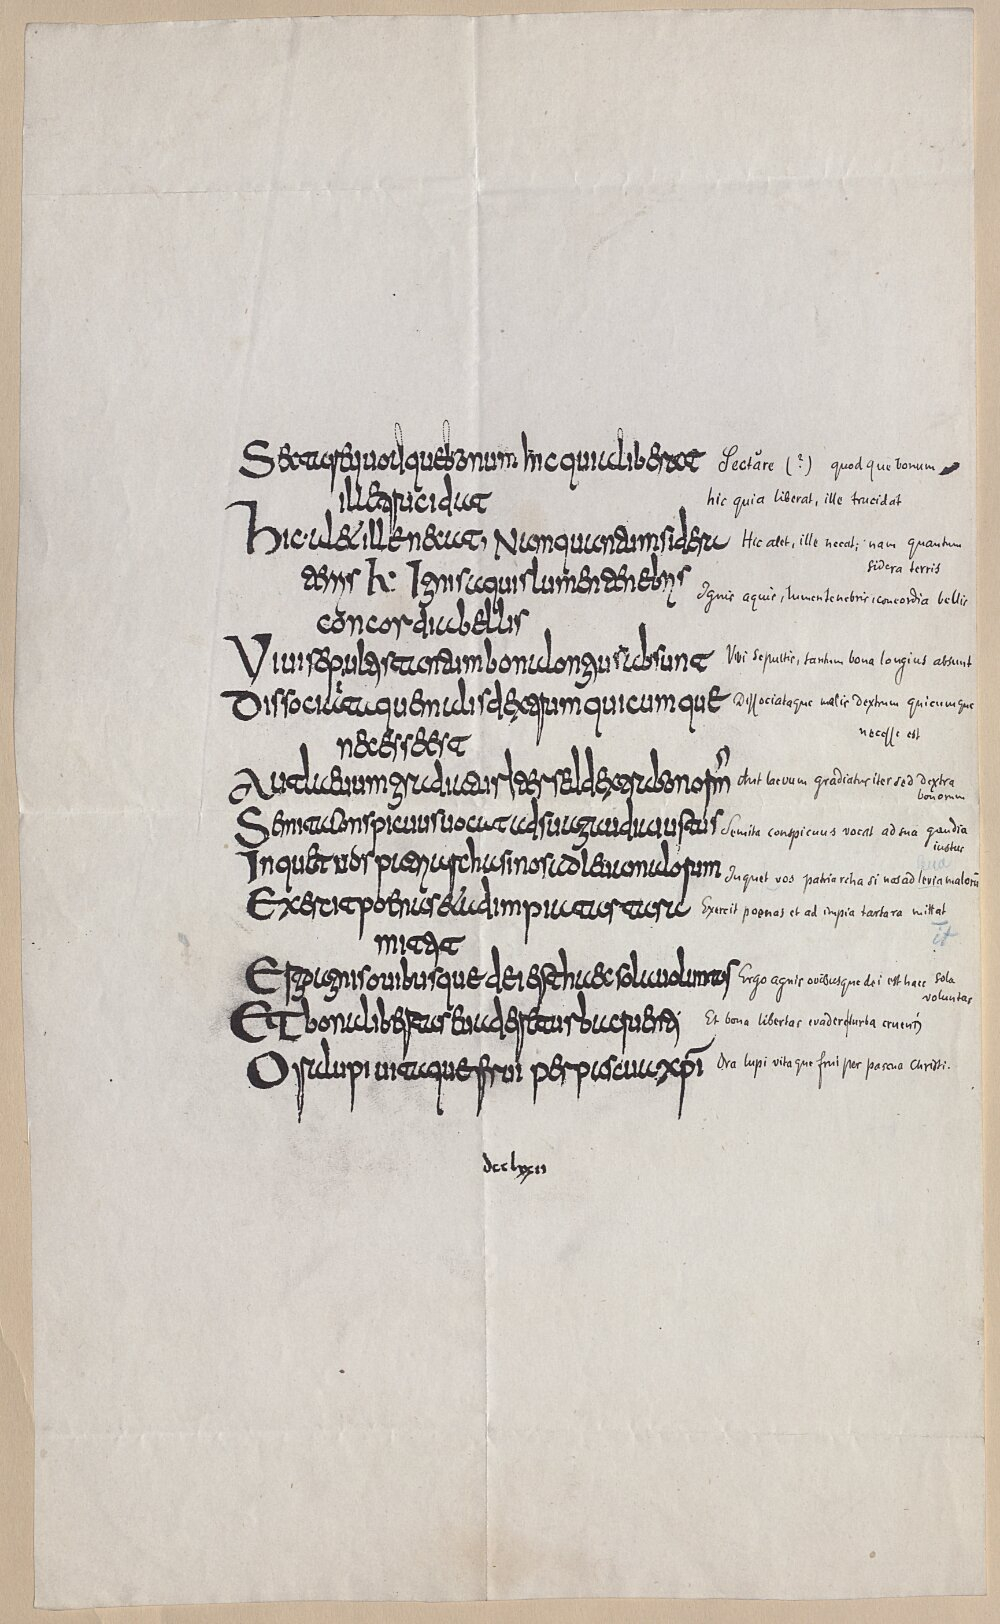 Sectarequodquebonum hic quia liberat Sectare (?) quod que bonum
illetrucidat hic quia liberat, ille trucidat
Hic alet ille necat, Nam quantum sidera Hic alet, ille necat; nam quantum
sidera terris
terris Ignis aquis lumen tenebris Ignis aquis, lumen tenebris, concordia bellis
concordia bellis
Vivi sepultis tantum bona longius absunt Vivi sepultis, tantum bona longius absunt
Dissociataque malis dextrum quicumque Dissociataque malis dextrum quicumque
necesse est necesse est
Aut laevum gradiatur iter sed dextra bonorum Aut laevum gradiatur iter sed dextra
bonorum
Semita conspicuus vocat ad sua gaudia iustus Semita conspicuus vocat ad sua gaudia
iustus
Inquet vos patriarcha sinos ad levia malorum Inquet vos patriarcha si nos ad levia malorū
Exercit poenas et ad impia tartara Exercit poenas et ad impia tartara mittat
mittat it
Ergo agnis ovibusque dei est haec sola voluntas Ergo agnis ovibusque dei est haec sola
voluntas
Et bona libertas evadere turba cruenti Et bona libertas evadere turba cruenti
Ora lupi vitaque frui per pascua xp̄i Ora lupi vitaque frui per pascua Christi.
dcclxxii